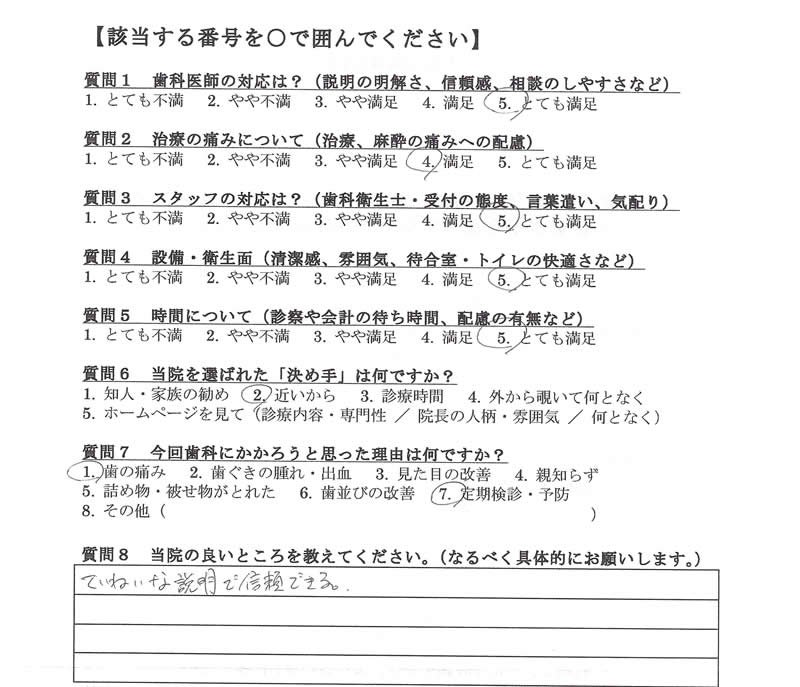 【該当する番号を〇で囲んでください】
質問1 歯科医師の対応は?(説明の明解さ、信頼感、相談のしやすさなど)
1. とても不満 2. やや不満 3. やや満足 4. 満足 5. とても満足
質問2 治療の痛みについて(治療、麻酔の痛みへの配慮)
1. とても不満 2. やや不満 3. やや満足 4. 満足 5. とても満足
質問3 スタッフの対応は?(歯科衛生士・受付の態度、言葉遣い、気配り)
1. とても不満 2. やや不満 3. やや満足 4. 満足 5. とても満足
質問4 設備・衛生面(清潔感、雰囲気、待合室・トイレの快適さなど)
1. とても不満 2. やや不満 3. やや満足 4. 満足 5. とても満足
質問5 時間について(診察や会計の待ち時間、配慮の有無など)
1. とても不満 2. やや不満 3. やや満足 4. 満足 5. とても満足
質問6 当院を選ばれた「決め手」は何ですか?
1. 知人・家族の勧め 2. 近いから 3. 診療時間 4. 外から覗いて何となく
5. ホームページを見て(診療内容・専門性 / 院長の人柄・雰囲気 / 何となく)
質問7 今回歯科にかかろうと思った理由は何ですか?
1. 歯の痛み 2. 歯ぐきの腫れ・出血 3. 見た目の改善 4. 親知らず
5. 詰め物・被せ物がとれた 6. 歯並びの改善 7. 定期検診・予防
8. その他( )
質問8 当院の良いところを教えてください。(なるべく具体的にお願いします。)
ていねいな説明で信頼できる。